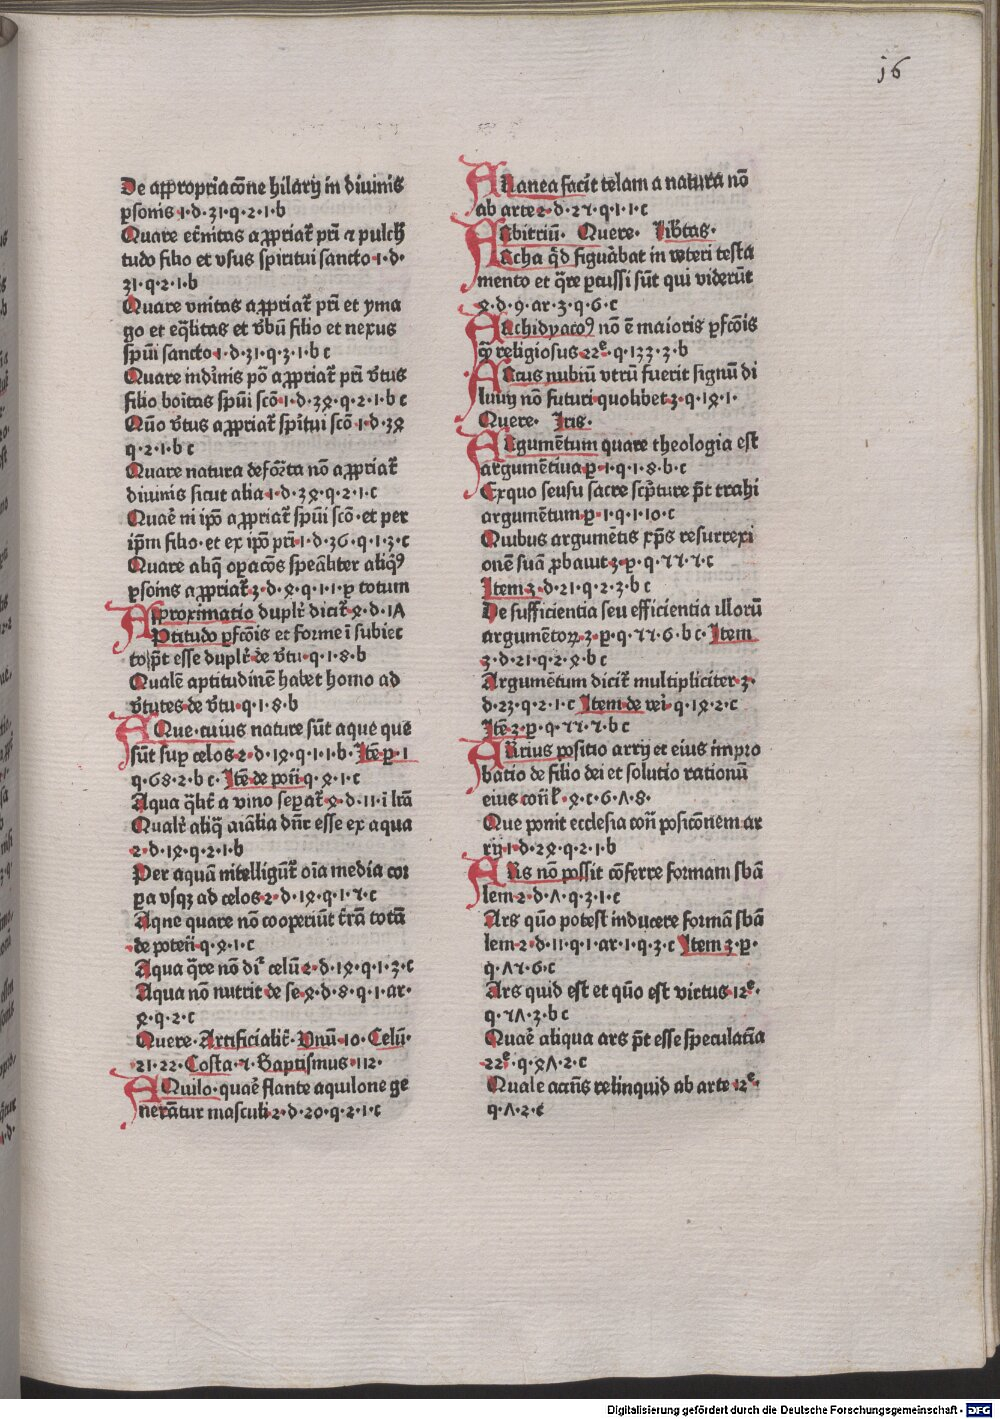 i6
De appropriacōne hilarij in diuinis
ꝑsonis·1·d·31·q·2·1·b
Quare et̄nitas appriat᷑ pr̄i ⁊ pulch
tudo filio et vsus spiritui sancto·1·d·
31·q·2·1·b
Quare vnitas appriat᷑ pr̄i et yma
go et eq̄litas et v̄bū filio et nexus
spūi sancto·1·d·31·q·3·1·b c
Quare appriat᷑ pr̄i v̄tus
filio boītas spūi scō·1·d·34·q·2·1·b c
Quō v̄tus appriat᷑ sp̄itui scō·1·d·34
q·2·1·b c
Quare natura nō appriat᷑
diuinis sicut alia·1·d·34·q·2·1·c
Quaē ni ip̄o appriat᷑ spūi scō·et per
ip̄m filio·et ex ip̄o pr̄i·1·d·36·q·1·3·c
Quare aliq̄ oꝑacōs
ꝑsoīns appriat᷑·3·d·4·q·1·1·ꝑ totum
Aproximatio duplr̄ dicit᷑·4·d·1Λ
Aptitudo ꝑfcōis et forme ī subiec
to p̄t esse duplr̄ de v̄tu·q·1·8·b
Qualē aptitudinē habet homo ad
v̄tutes de v̄tu·q·1·8·b
AQue·cuius nature sūt aque que
sūt sup celos·2·d·14·q·1·1·b·Itē ꝑ·1
q·68·2·b c·Itē de poñ·q·4·1·c
Aqua q̄lit᷑ a vino seꝑat᷑·4·d·11·i lrā
Qualr̄ aliq̄ aīalia dn̄r esse ex aqua
2·d·14·q·2·1·b
Per aquā nitelligūt᷑ oīa media cor
ꝑa vsqꝫ ad celos·2·d·14·q·1·⁊·c
Aqne quare nō cooperiūt t̄rā totā
de poteñ·q·4·1·c
Aqua q̄re nō dr̄ celū·2·d·14·q·1·3·c
Aqua nō nutrit de se·4·d·8·q·1·ar·
4·q·2·c
Quere·Artificialit᷑·Vnū·10·Celū·
21·22·Costa·⁊·Baptismus·112·
AQuilo·quaē flante aquilone ge
nerātur masculi·2·d·20·q·2·1·c
ARanea facit telam a natura nō
ab arte·2·d·2ⁿ·q·1·1·c
ARbitriū·Quere·libtas·
ARcha q̄d figuābat in veteri testa
mento et q̄re ꝑcussi sūt qui viderūt
4·d·9·ar·3·q·6·c
ARchidyacoꝰ nō ē maioris ꝑfcōis
q̄ religiosus·22ᵉ·q·133·3·b
ARcus nubiū vtrū fuerit signū di
luuij nō futuri·quolibet·3·q·14·1·
Quere·Iris·
ARgumētum quare theologia est
argumētiua·ꝑ·1·q·1·8·b·c
Exquo sensu sacre sc̄pture p̄t trahi
argumētum·ꝑ·1·q·1·10·c
Quibus argumētis xp̄s resurrexi
onē suā ꝓbauit·3·ꝑ·q·ⁿⁿ·ⁿ·c
Item·3·d·21·q·2·3·b c
De sufficientia seu efficientia illorū
argumētoꝝ·3·ꝑ·q·ⁿⁿ·6·b c·Item
3·d·21·q·2·4·b c
Argumētum dicit᷑ multipliciter·3·
d·23·q·2·1·c Item de veī·q·14·2·c
Itē·3·ꝑ·q·ⁿⁿ·ⁿ·b c
ARrius positio arrij et eius impro
batio de filio dei et solutio rationū
eius coñ·4·c·6·Λ·8·
Que ponit ecclesia coñ posicōnem ar
rij·1·d·24·q·2·1·b
ARs nō possit cōferre formam sbā
lem·2·d·Λ·q·3·1·c
Ars quō potest inducere formā sbā
lem·2·d·11·q·1·ar·1·q·3·c Item·3·ꝑ·
q·Λⁿ·6·c
Ars quid est et quō est virtus·12ᵉ·
q·ⁿΛ·3·b c
Quaē aliqua ars p̄t esse speculatīa
22ᵉ·q·4Λ·2·c
Quale accn̄s relinquid ab arte·12ᵉ·
q·Λ·2·c
Digitalisierung gefördert durch die Deutsche Forschungsgemeinschaft - DFG